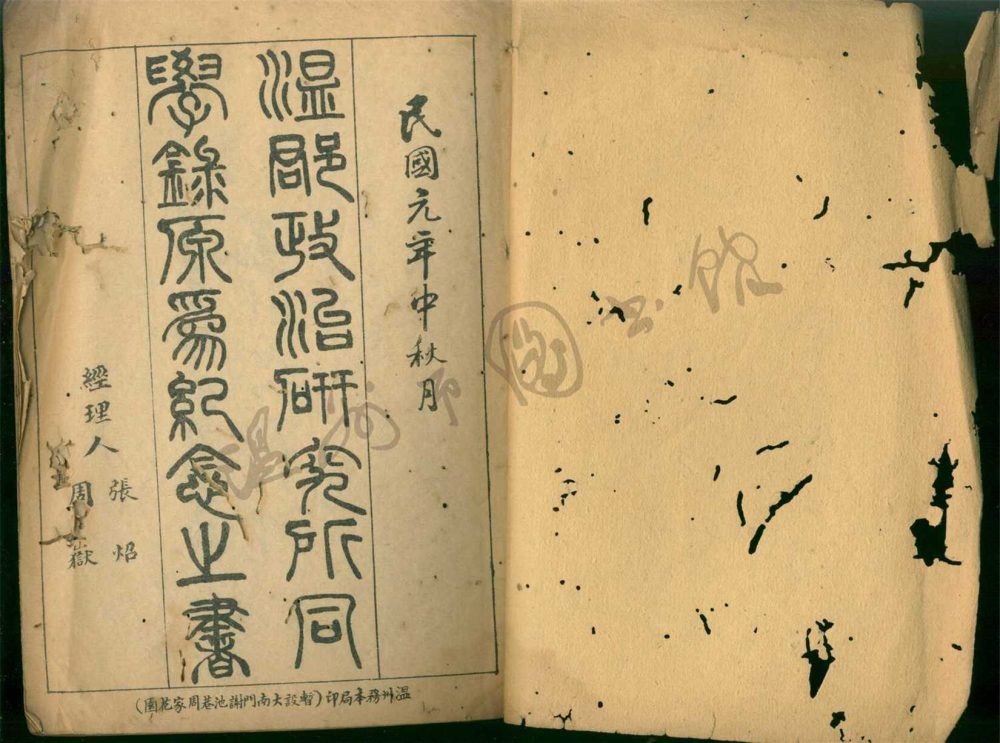 民國元年中秋月
溫郡政治研究所同
學錄原爲紀念之書
經理人
張焰
周嶽
溫州務本局印(暫設大南門謝池巷周家花園)
温州市图书馆